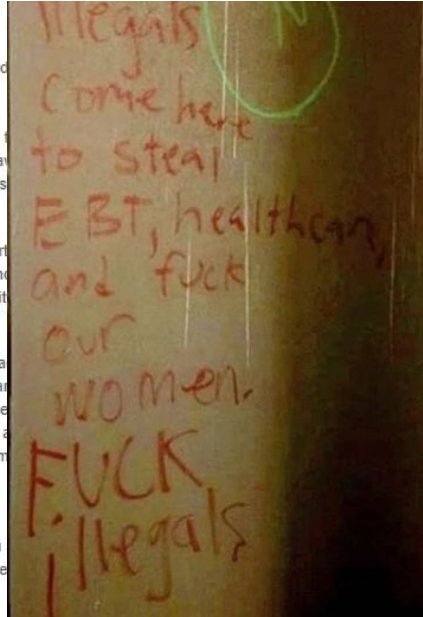 Illegals
Come here
to steal
EBT, healthcare,
and fuck
our
women.
FUCK
illegals